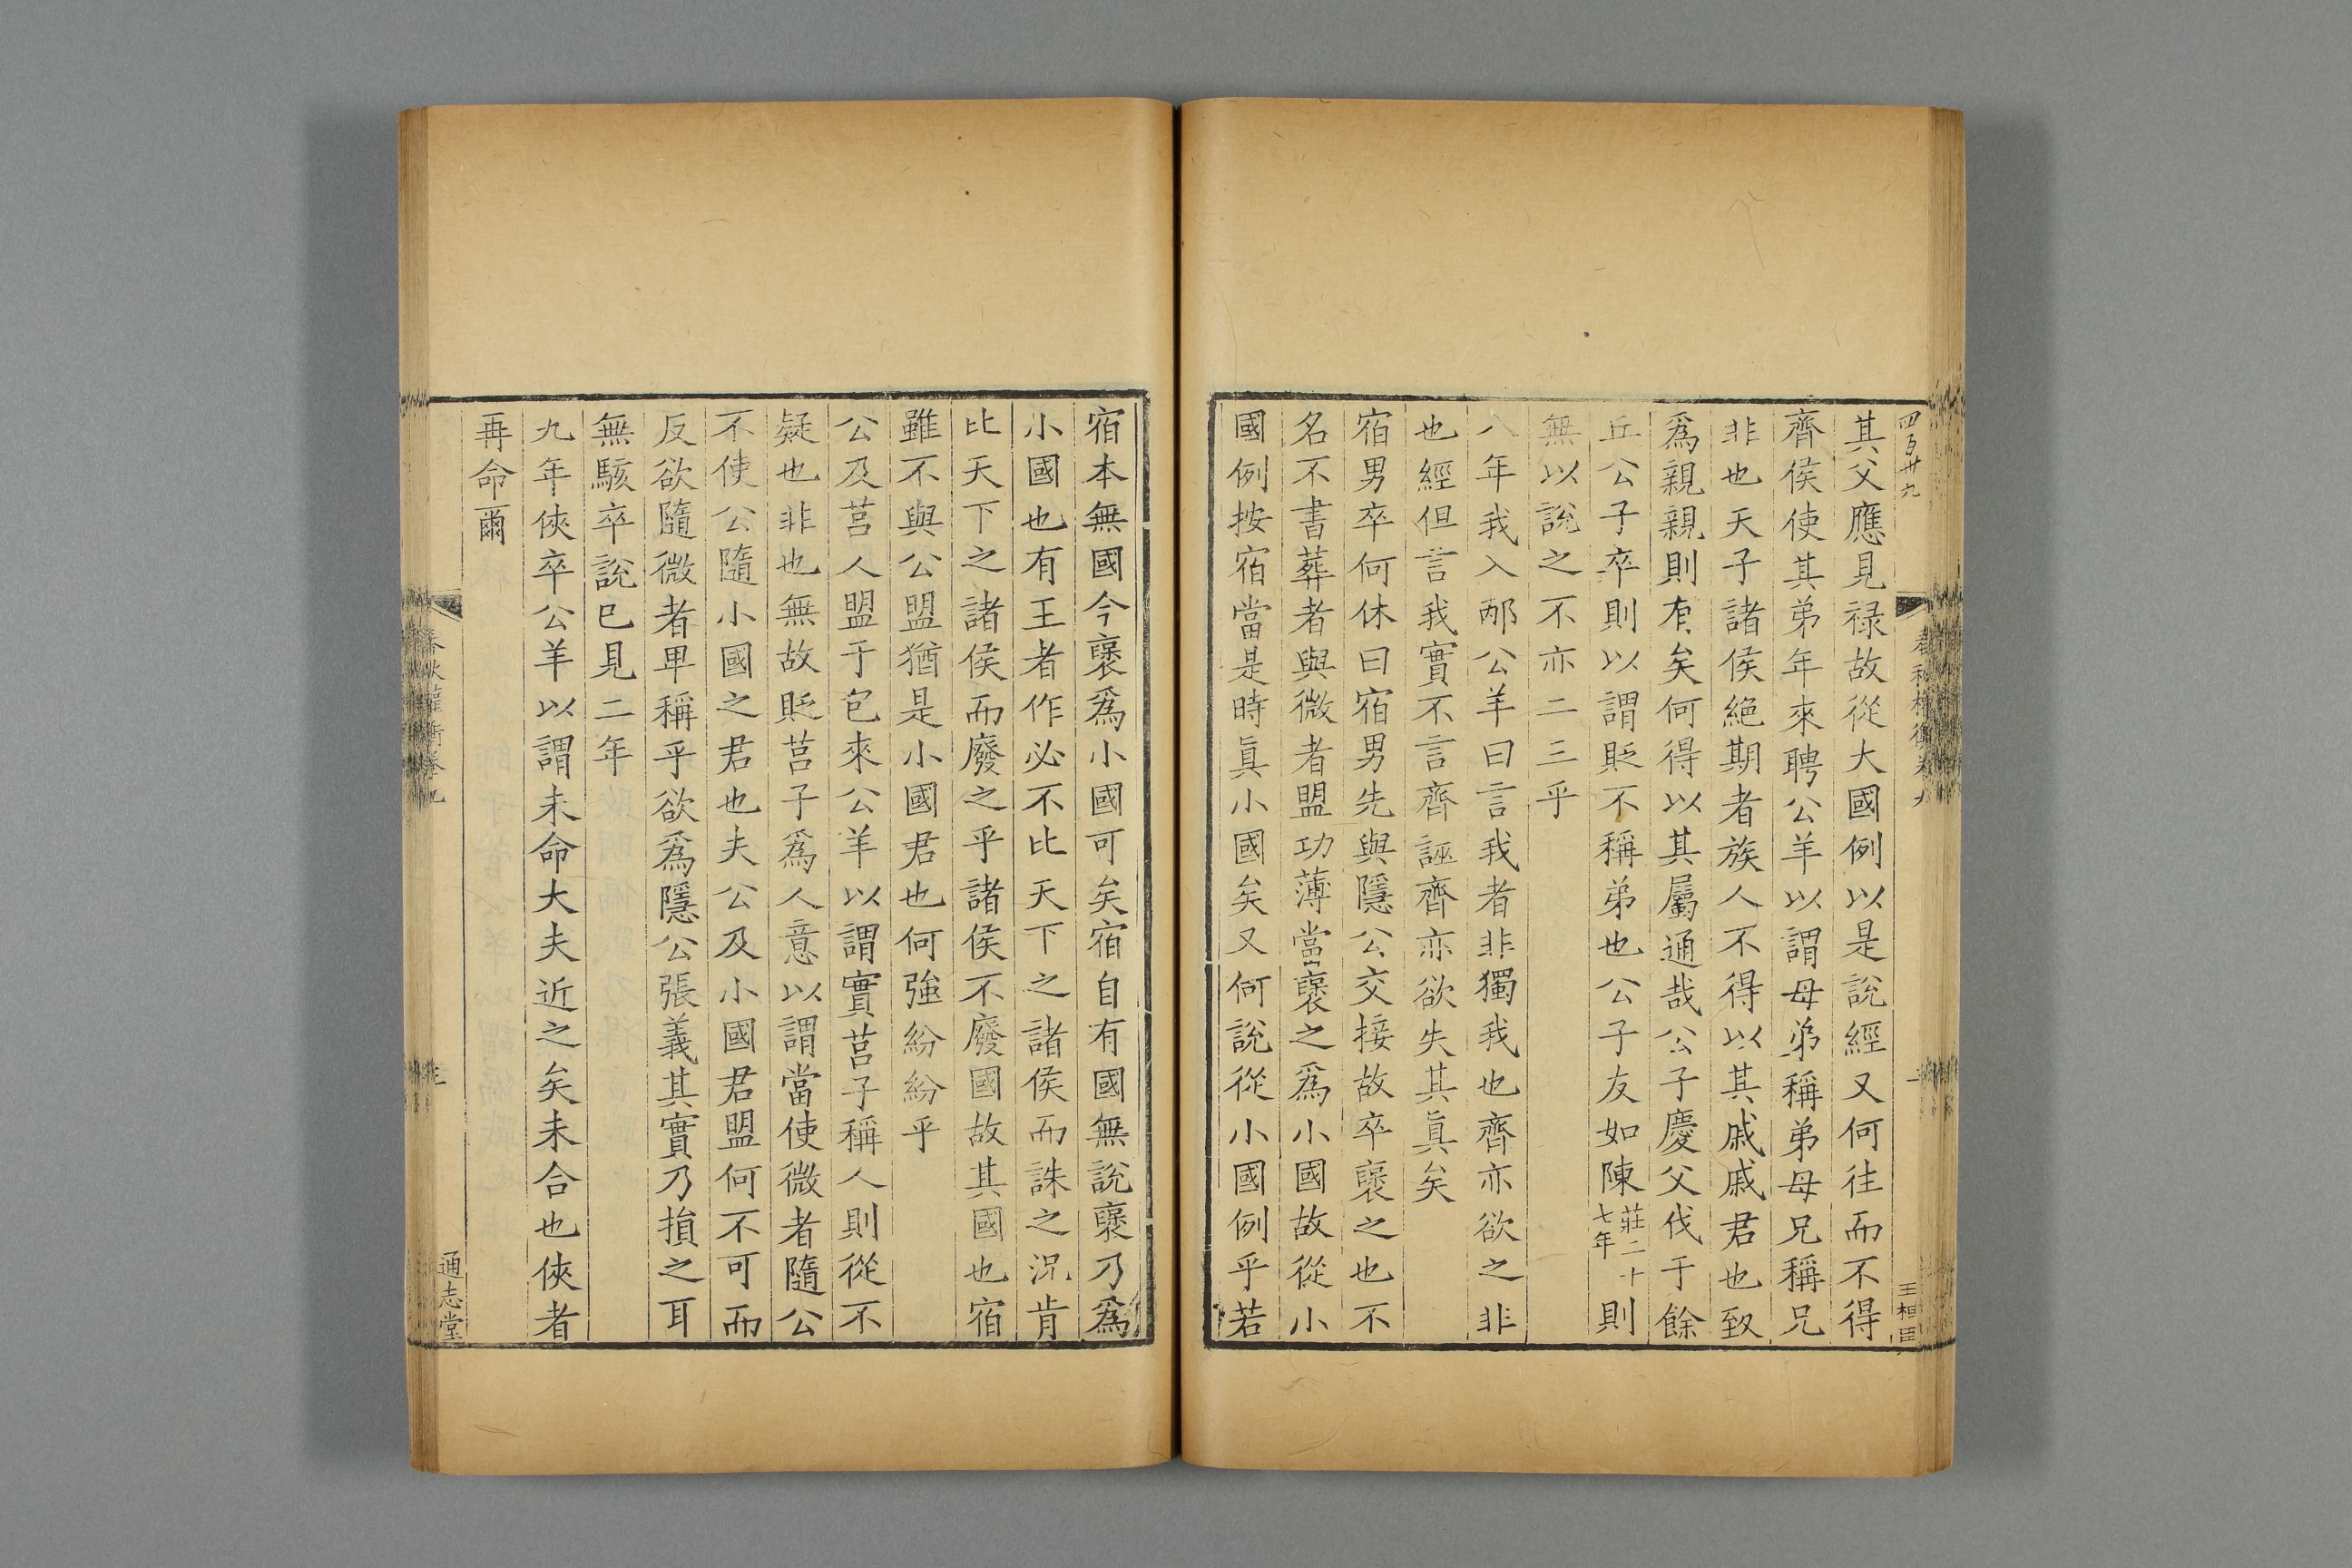 四百卅九
春秋權衡卷九
王相臣
其父應見禄故從大國例以是說經又何往而不得
齊侯使其弟年來聘公羊以謂母弟稱弟母兄稱兄
非也天子諸侯絶期者族人不得以其戚戚君也致
爲親親則有矣何得以其屬通哉公子慶父伐于餘
丘公子卒則以謂貶不稱弟也公子友如陳莊二十七年則
無以說之不亦二三乎
八年我入邴公羊曰言我者非獨我也齊亦欲之非
也經但言我實不言齊誣齊亦欲失其眞矣
宿男卒何休曰宿男先與隱公交接故卒襃之也不
名不書葬者與微者盟功薄當襃之爲小國故從小
國例按宿當是時眞小國矣又何說從小國例乎若
宿本無國今襃爲小國可矣宿自有國無說襃乃爲
小國也有王者作必不比天下之諸侯而誅之況肯
比天下之諸侯而廢之乎諸侯不廢國故其國也宿
雖不與公盟猶是小國君也何強紛紛乎
公及莒人盟于包來公羊以謂實莒子稱人則從不
疑也非也無故貶莒子爲人意以謂當使微者隨公
不使公隨小國之君也夫公及小國君盟何不可而
反欲隨微者卑稱乎欲爲隱公張義其實乃損之耳
無駭卒說已見二年
九年俠卒公羊以謂未命大夫近之矣未合也俠者
再命爾
春秋權衡卷九
通志堂